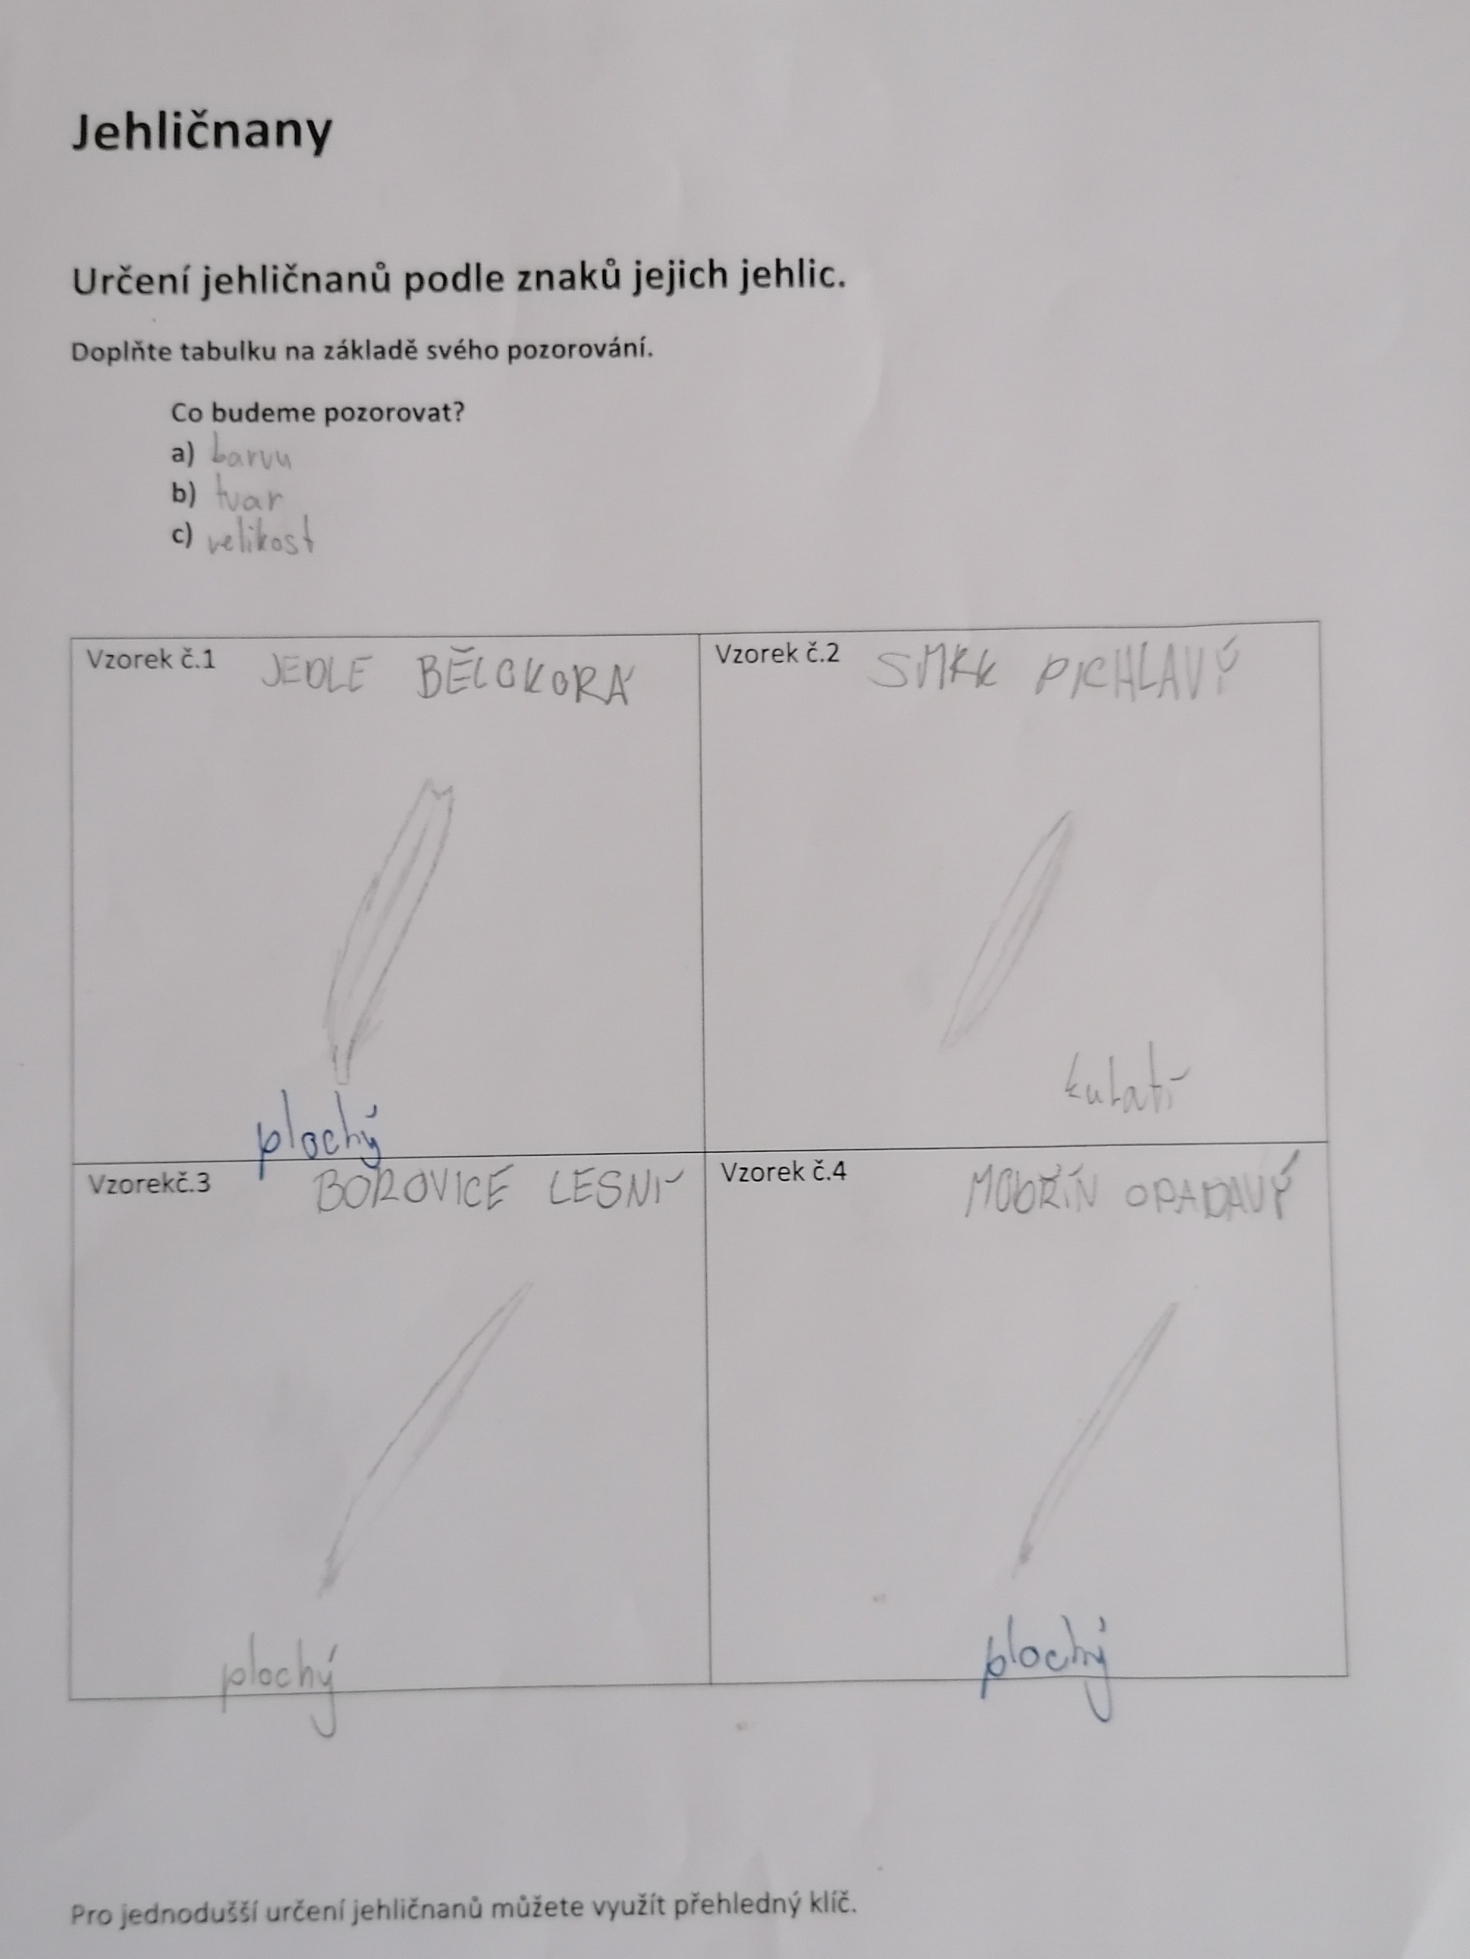 Jehličnany
Určení jehličnanů podle znaků jejich jehlic.
Doplňte tabulku na základě svého pozorování.
Co budeme pozorovat?
a) barvu
b) tvar
c) velikost
Vzorek č.1 JEDLE BĚLOKORÁ
Vzorek č.2 SMRK PICHLAVÝ
kulatí
plochý
Vzorekč.3 BOROVICE LESNÍ
Vzorek č.4 MODŘÍN OPADAVÝ
plochý
plochý
Pro jednodušší určení jehličnanů můžete využít přehledný klíč.